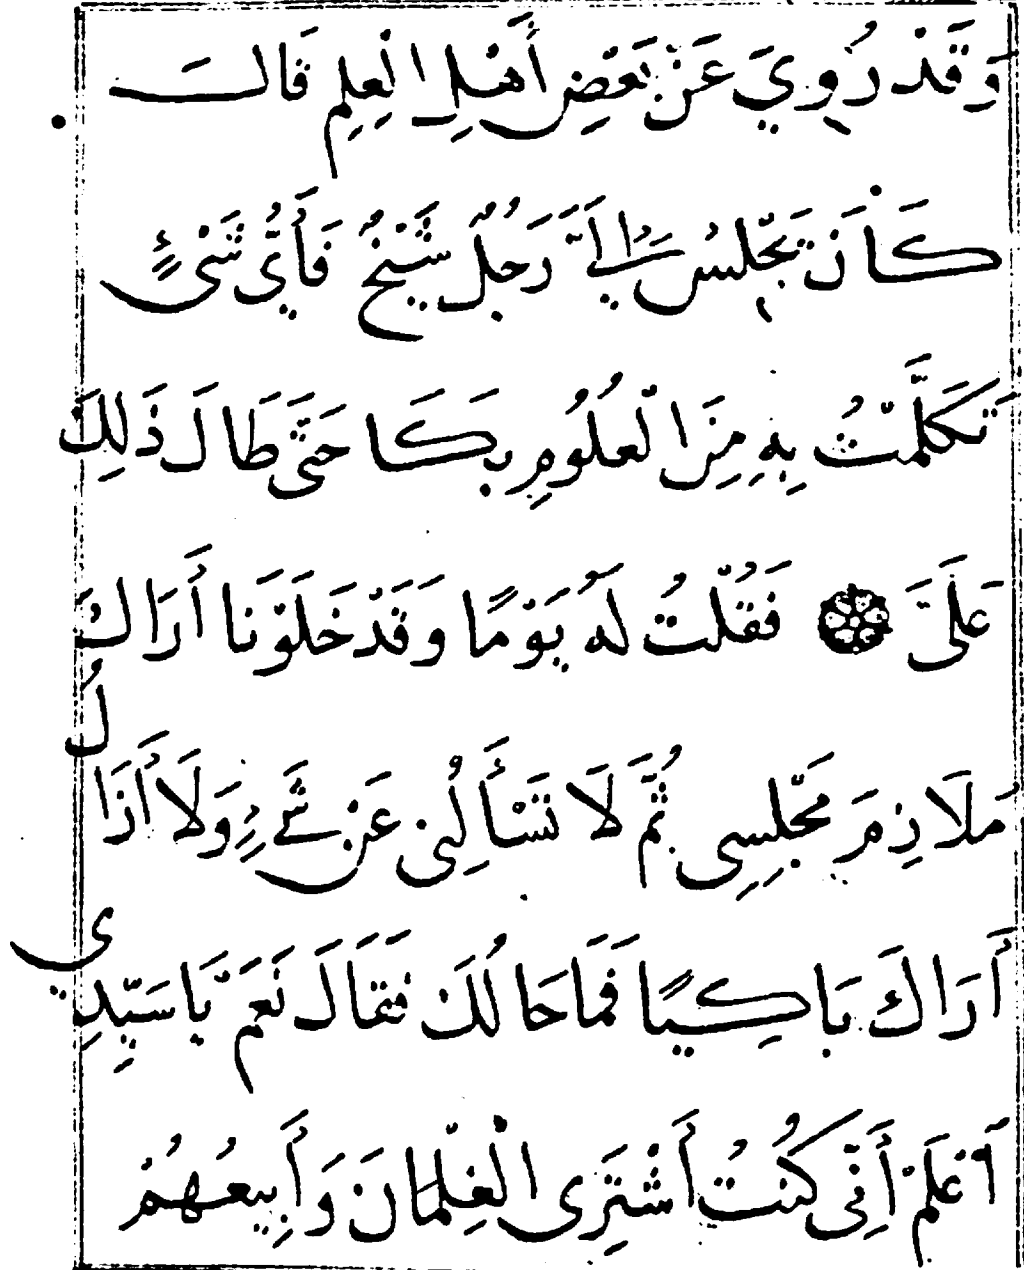 وَقَدْ رُوِيَ عَنْ بَعْضِ أَهْلِ الْعِلْمِ قَالَ
كَانَ يَجْلِسُ إِلَيَّ رَجُلٌ شَيْخٌ فَأَيُّ شَيْءٍ
تَكَلَّمْتُ بِهِ مِنَ الْعُلُومِ بَكَا حَتَّى طَالَ ذَلِكَ
عَلَيَّ فَقُلْتُ لَهُ يَوْمًا وَقَدْ خَلَوْنَا أَرَاكَ
مُلَازِمَ مَجْلِسِي ثُمَّ لَا تَسْأَلُنِي عَنْ شَيْءٍ وَلَا أَزَالُ
أَرَاكَ بَاكِيًا فَمَا حَالُكَ فَقَالَ نَعَمْ يَا سَيِّدِي
أَعْلَمْ أَنِّي كُنْتُ أَشْتَرِي الْغِلْمَانَ وَأَبِيعُهُمْ